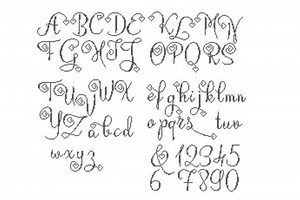 A B C D E K L M N
F G H I J O P Q R S
T U V W X e f g h i j k l m n
Y Z a b c d o p q r s t u v
w x y z & 1 2 3 4 5
6 7 8 9 0